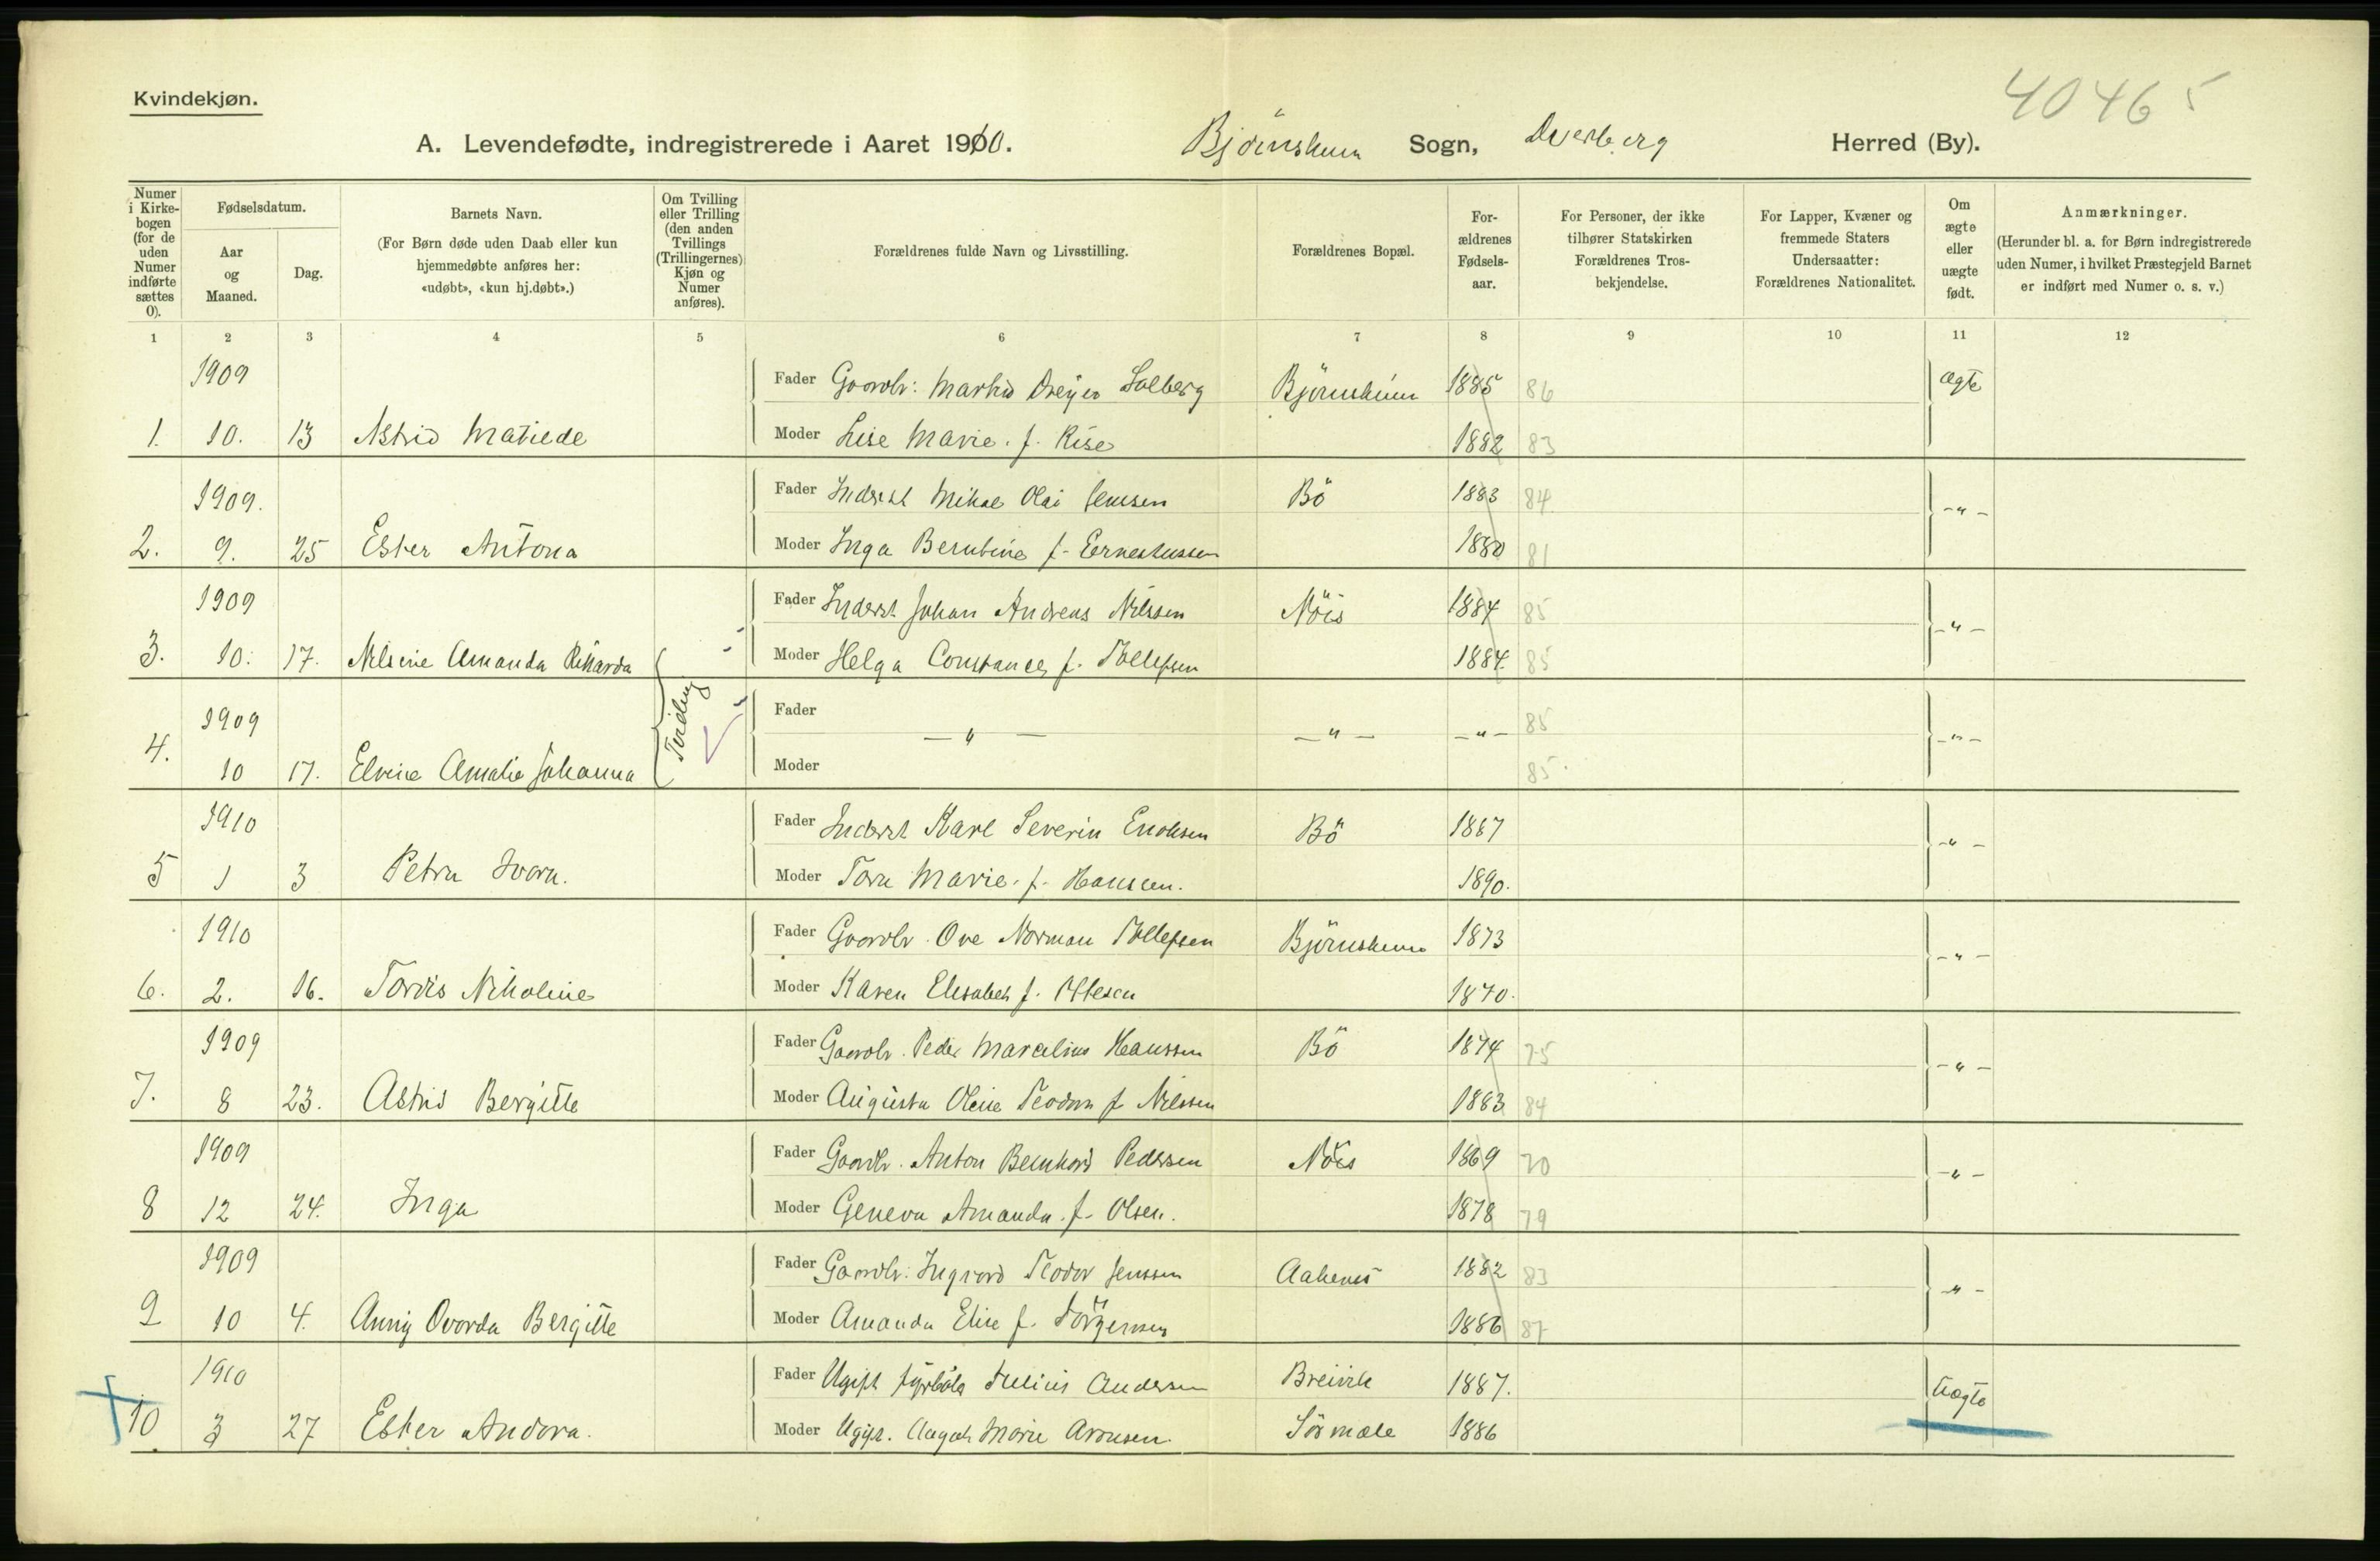 Kvindekjøn.
40465
A. Levendefødte, indregistrerede i Aaret 1910. Bjørnskinn Sogn, Dverberg Herred (By).
Numer i Kirkebogen (for de uden Numer indførte sættes 0).
Fødselsdatum.
Aar og Maaned.
Dag.
Barnets Navn.
(For Børn døde uden Daab eller kun hjemmedøbte anføres her: «udøbt», «kun hj.døbt».)
Om Tvilling eller Trilling (den anden Tvillings (Trillingernes) Kjøn og Numer anføres).
Forældrenes fulde Navn og Livsstilling.
Forældrenes Bopæl.
Forældrenes Fødselsaar.
For Personer, der ikke tilhører Statskirken Forældrenes Trosbekjendelse.
For Lapper, Kvæner og fremmede Staters Undersaatter: Forældrenes Nationalitet.
Om ægte eller uægte født.
Anmærkninger.
(Herunder bl. a. for Børn indregistrerede uden Numer, i hvilket Præstegjeld Barnet er indført med Numer o. s. v.)
1 2 3 4 5 6 7 8 9 10 11 12
1909 Fader Gaardbr: Martin Dreyer Solberg Bjørnskinn 1885 86 Ægte
1. 10. 13 Astrid Matilde Moder Lise Marie. f. Rise 1882 83
1909. Fader Inderst Mikal Olai Jenssen Bö 1883 84 -"-
2. 9. 25 Ester Antona Moder Inga Berntine f. Ernestussen 1880 81
1909 Fader Inderst Johan Andreas Nilssen Nöis 1884 85 -"-
3. 10. 17. Nilsine Amanda Rikarda Moder Helga Constance f. Tollefsen 1884. 85
Tvilling
1909 Fader -"- -"- -"- 85 -"-
4. 10 17. Elvine Amalie Johanna Moder 85
1910 Fader Inderst Karl Severin Enoksen Bö 1887 -"-
5 1 3 Petra Ivara. Moder Tora Marie. f. Hanssen. 1890.
1910 Fader Gaardbr. Ove Norman Tollefsen Bjørnskinn 1873 -"-
6. 2. 16. Tordis Nikoline Moder Karen Elisabet f. Ottesen 1870.
1909 Fader Gaardbr. Peder Marcelius Hanssen Bö 1874 75 -"-
7. 8 23. Astrid Bergitte Moder Augusta Oline Teodora f Nilssen 1883 84
1909 Fader Gaardbr. Anton Bernhard Pedersen Nöis 1869 70 -"-
8 12 24. Inga Moder Geneva Amanda. f. Olsen. 1878 79
1909 Fader Gaardbr. Ingvard Teodor Jenssen Aaknes 1882 83 -"-
9 10 4. Anny Ovorda Bergitte Moder Amanda Elise f. Jörgensen 1886 87
1910 Fader Ugift Julius Andersen Breivik 1887. Uægte
10 3 27 Ester Andora. Moder Ugift. Marie Aronsen. Sörmele 1886